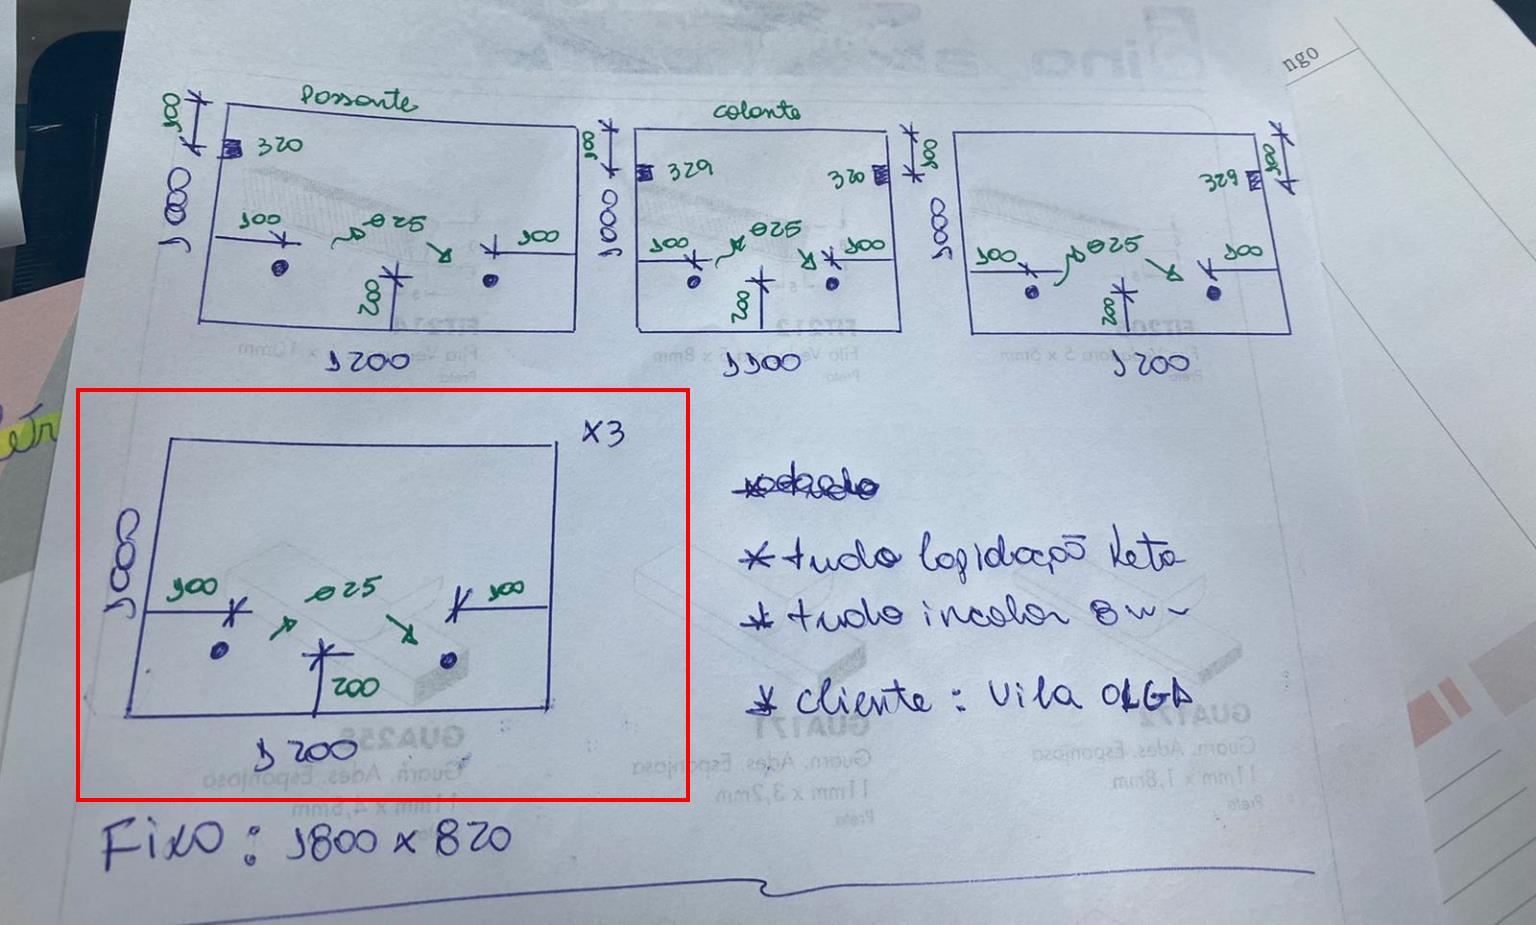 ngo
Possante
colante
100
320
1000
100
ɵ25
100
200
1200
100
329
320
100
1000
100
ɵ25
100
200
1100
329
100
1000
100
ɵ25
100
200
1200
X3
1000
100
ɵ25
100
200
1200
* tudo lapidação Reta
* tudo incolor 8mm
* cliente: Vila OLGA
Fixo: 1800 x 820
FIT214
Fita Ve
x 10mm
Preto
FIT212
Fita Ve
5 x 8mm
Preto
5 x 5mm
Preto
GUA258
Guarn. Ades. Esponjosa
11mm x 4,8mm
GUA171
Guarn. Ades. Esponjosa
11mm x 3,2mm
Preto
GUA172
Guarn. Ades. Esponjosa
11mm x 1,8mm
Preto